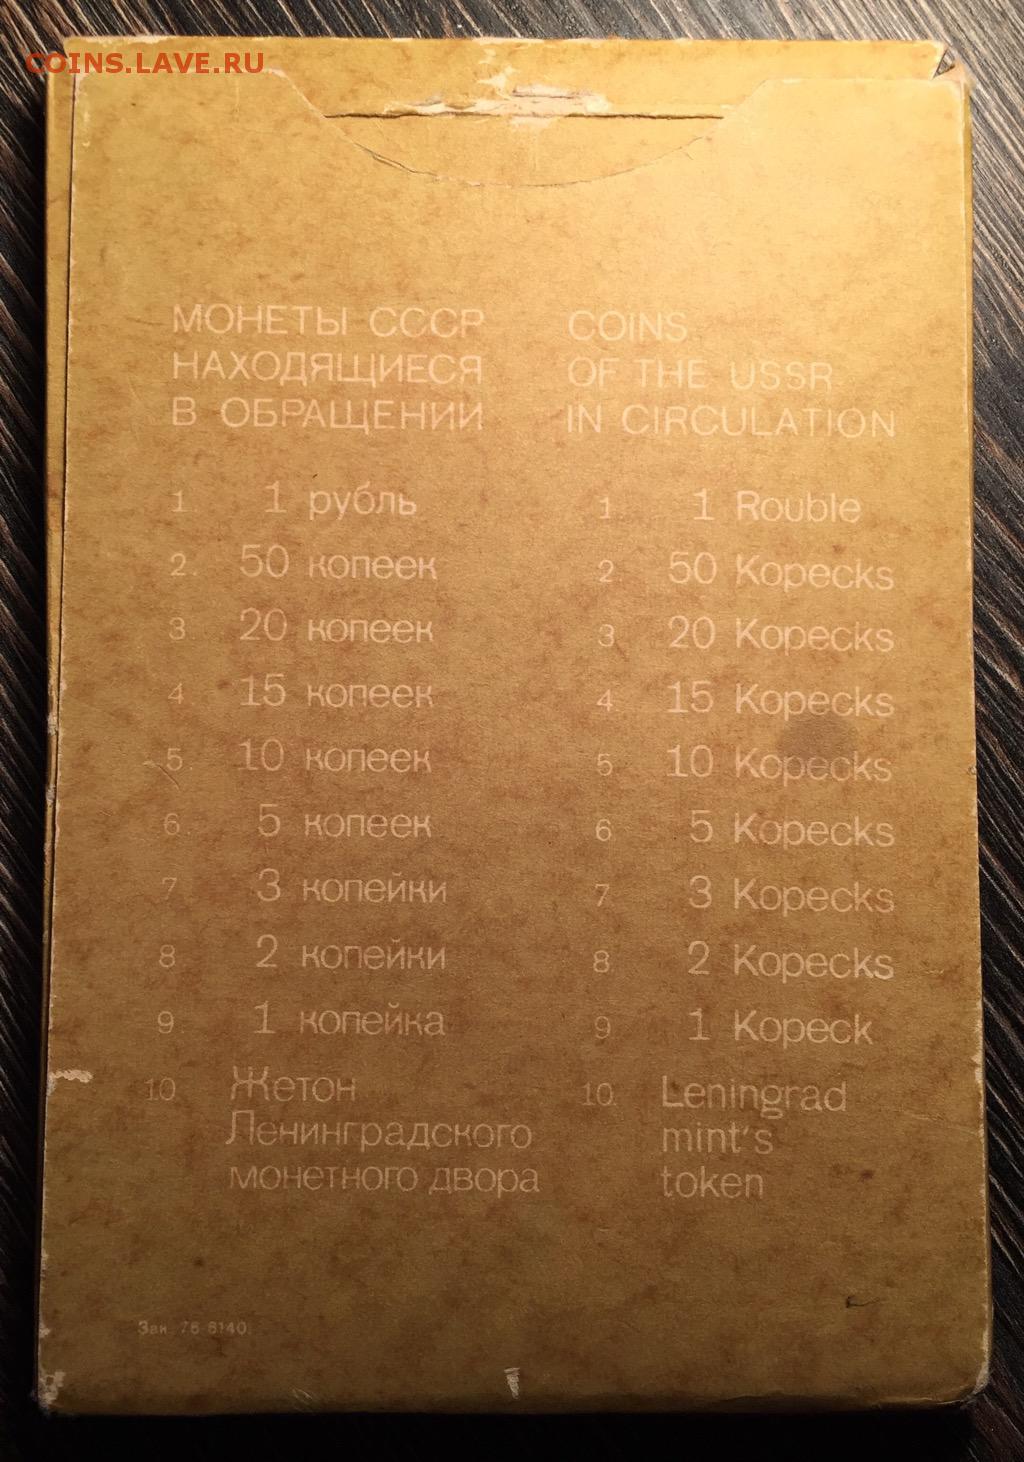 COINS.LAVE.RU
МОНЕТЫ СССР
НАХОДЯЩИЕСЯ
В ОБРАЩЕНИИ
1 1 рубль
2. 50 копеек
3. 20 копеек
4 15 копеек
5. 10 копеек
6. 5 копеек
7 3 копейки
8 2 копейки
9. 1 копейка
10. Жетон
Ленинградского
монетного двора
COINS
OF THE USSR
IN CIRCULATION
1 1 Rouble
2 50 Kopecks
3 20 Kopecks
4 15 Kopecks
5 10 Kopecks
6 5 Kopecks
7 3 Kopecks
8 2 Kopecks
9 1 Kopeck
10. Leningrad
mint's
token
Зак. 76 6140.